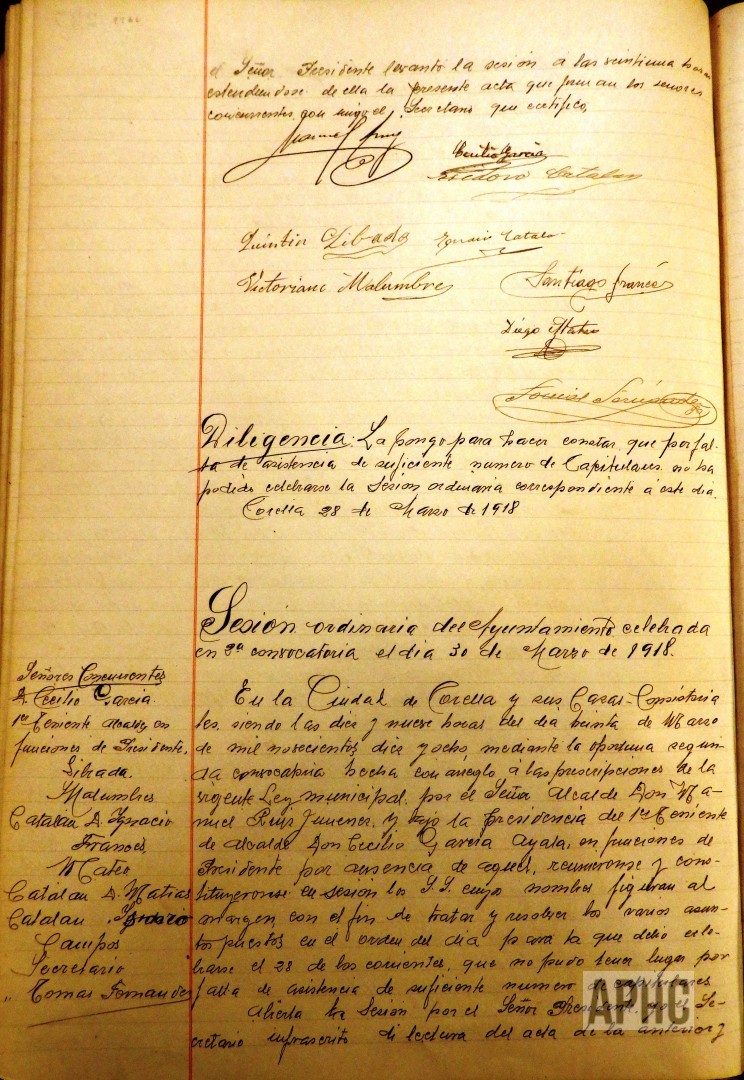 el Señor Presidente levantó la sesión á las veintiuna horas
estendiendose de ella la presente acta que firman los señores
concurrentes con migo el Secretario que certifico,
Cecilio Garcia
Isidoro Catalan
Quintin Libada
Ignacio Catalan
Victoriano Malumbres
Santiago Francés
Diego Mateo
Tomás Fernandez
Diligencia: La pongo para hacer constar que por fal-
ta de asistencia de suficiente numero de Capitulares no ha
podido celebrarse la Sesion ordinaria correspondiente á este dia.
Corella 28 de Marzo de 1918
Sesión ordinaria del Ayuntamiento celebrada
en 2ª convocatoria el dia 30 de Marzo de 1918.
Señores Concurrentes
D. Cecilio Garcia
1er Teniente alcalde, en
funciones de Presidente,
Libada
Malumbres
Catalan D. Ignacio
Francés
Mateo
Catalan D. Matias
Catalan Isidoro
Campos
Secretario
" Tomas Fernandez
En la Ciudad de Corella y sus Casas-Consistoria
les, siendo las diez y nueve horas del dia treinta de Marzo
de mil novecientos diez y ocho, mediante la oportuna segun-
da convocatoria hecha con arreglo á las prescripciones de la
vigente Ley municipal, por el Señor Alcalde Don Ma-
nuel Ruiz Jimenez, y bajo la Presidencia del 1er Teniente
de alcalde Don Cecilio Garcia Ayala, en funciones de
Presidente por ausencia de aquel, reunieronse y cons-
tituyeronse en sesion los S.S. cuyo nombres figuran al
margen con el fin de tratar y resolver los varios asun-
tos puestos en el orden del dia para la que debió cele-
brarse el 28 de los corrientes, que no pudo tener lugar por
falta de asistencia de suficiente numero de capitulares
Abierta la Sesion por el Señor Presidente, el Se-
cretario infrascrito di lectura del acta de la anterior y
APHC